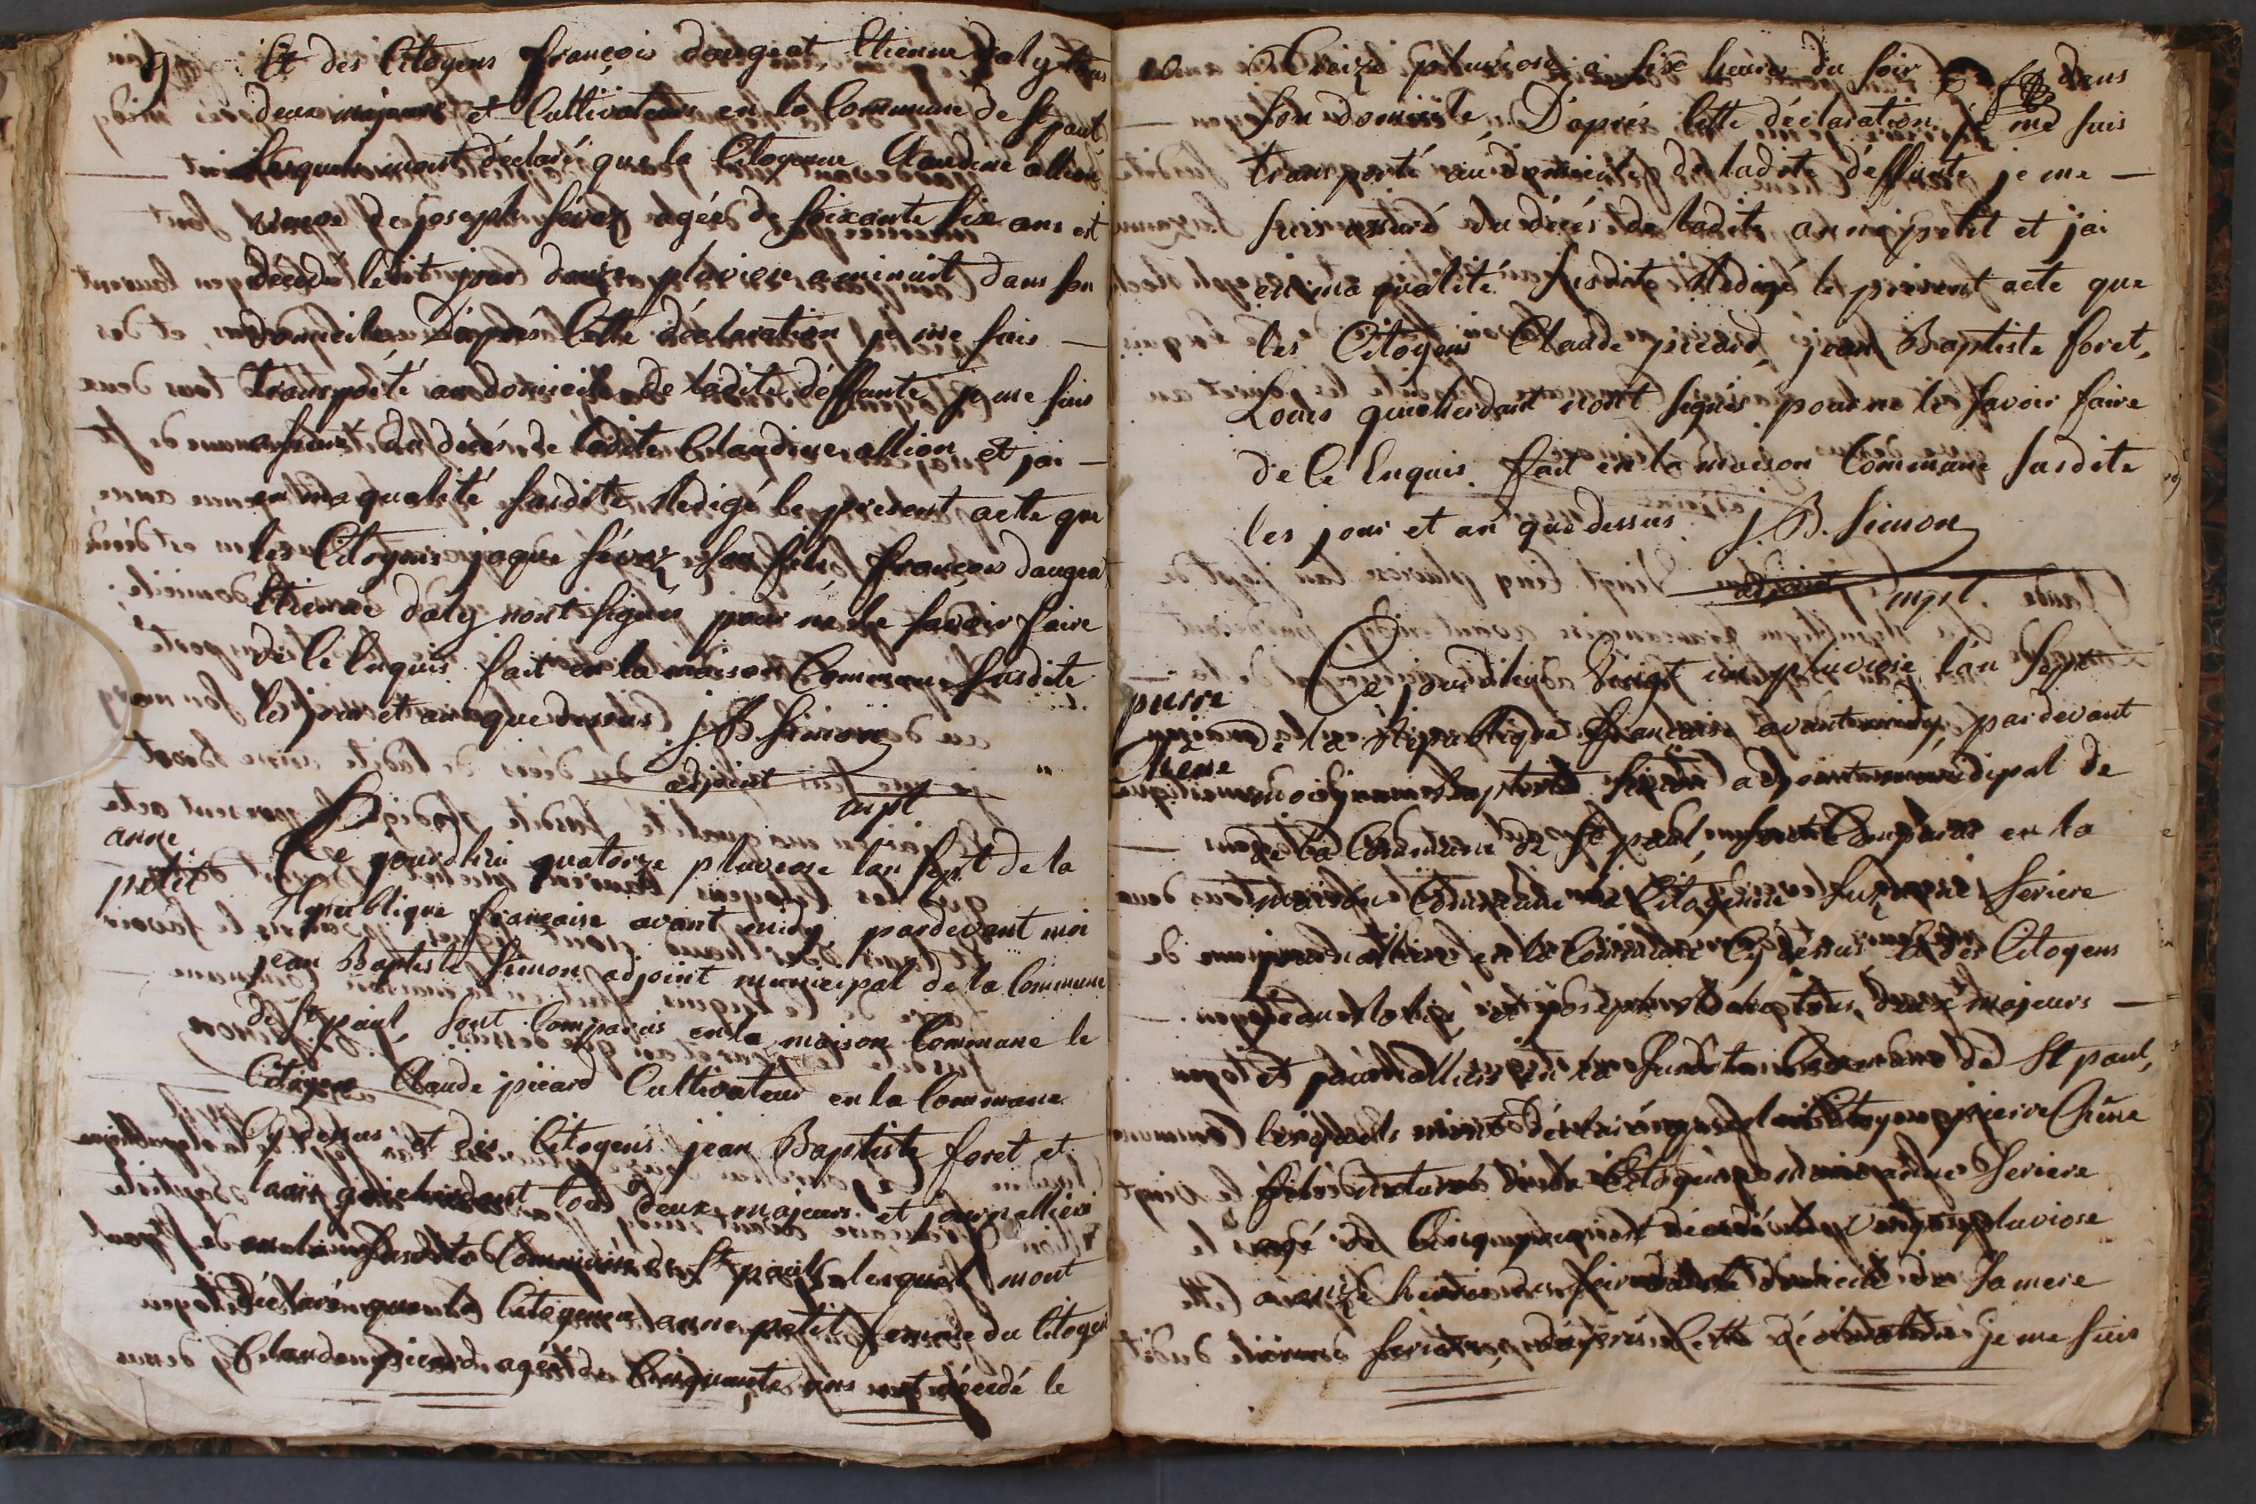 9
Et des Citoyens françois daugeat, Etienne daly tous
deux majeurs et Cultivateurs en la Commune de St paul
lesquels mont déclaré que la Citoyenne Claudine allion
veuve de joseph févez agée de soixante six ans est
décédé ledit jour douze pluviose a minuit dans son
domicile, D'après Cette déclaration je me suis —
transporté au domicile de ladite déffunte je me suis
assuré du decés de ladite Claudine allion et jai —
en ma qualité susdite Redigé le présent acte que
les Citoyens jaque févez son fils françois daugeat
Etienne daly nont signés pour ne le savoir faire
de Ce Enquis. fait en la maison Commune susdite
les jour et an que dessus. J. B. Simon
adjoint
mpl
anne
petit
Ce jourdhui quatorze pluviose lan sept de la
Republique française avant midy pardevant moi
jean Baptiste Simon adjoint municipal de la Commune
de St paul, sont Comparus en la maison Commune le
Citoyen Claude picard Cultivateur en la Commune
Cy dessus et des Citoyens jean Baptiste foret et
louis guicherdant tous deux majeurs et journalliers
en la susdite Commune de St paul lesquels mont
déclaré que la Citoyenne anne petit femme du Citoyen
Claude picard agée de Cinquante ans est décédé le
10
Treize pluviose a six heures du soir dans
son domicile, D'après Cette déclaration je me suis
transporté au domicile de ladite déffunte je me —
suis assuré du décés de ladite anne petit et jai
en ma qualité susdite Redigé le présent acte que
les Citoyens Claude picard, jean Baptiste foret,
Louis guicherdant nont signés pour ne le savoir faire
de Ce Enquis. fait en la maison Commune susdite
les jour et an que dessus. J. B. Simon
adjoint mpl.
pierre
Chene
Ce jourdhui Vingt un pluviose lan Sept
de la Republique française avant midy, pardevant
moi jean Baptiste Simon adjoint municipal de
de la Commune de St paul, sont Comparus en la
maison Commune la Citoyenne Suzanne Seriere
journalliere en la Commune Cy dessus et des Citoyens
et joseph tous deux majeurs —
et journalliers en la susdite Commune de St paul,
lesquels mont déclaré que le Citoyen pierre Chêne
fils naturel de la Citoyenne anne Seriere
agé de Cinq décédé le vingt pluviose
a onze heures du soir dans le domicile de Sa mere
Seriere, d'après Cette déclaration je me suis